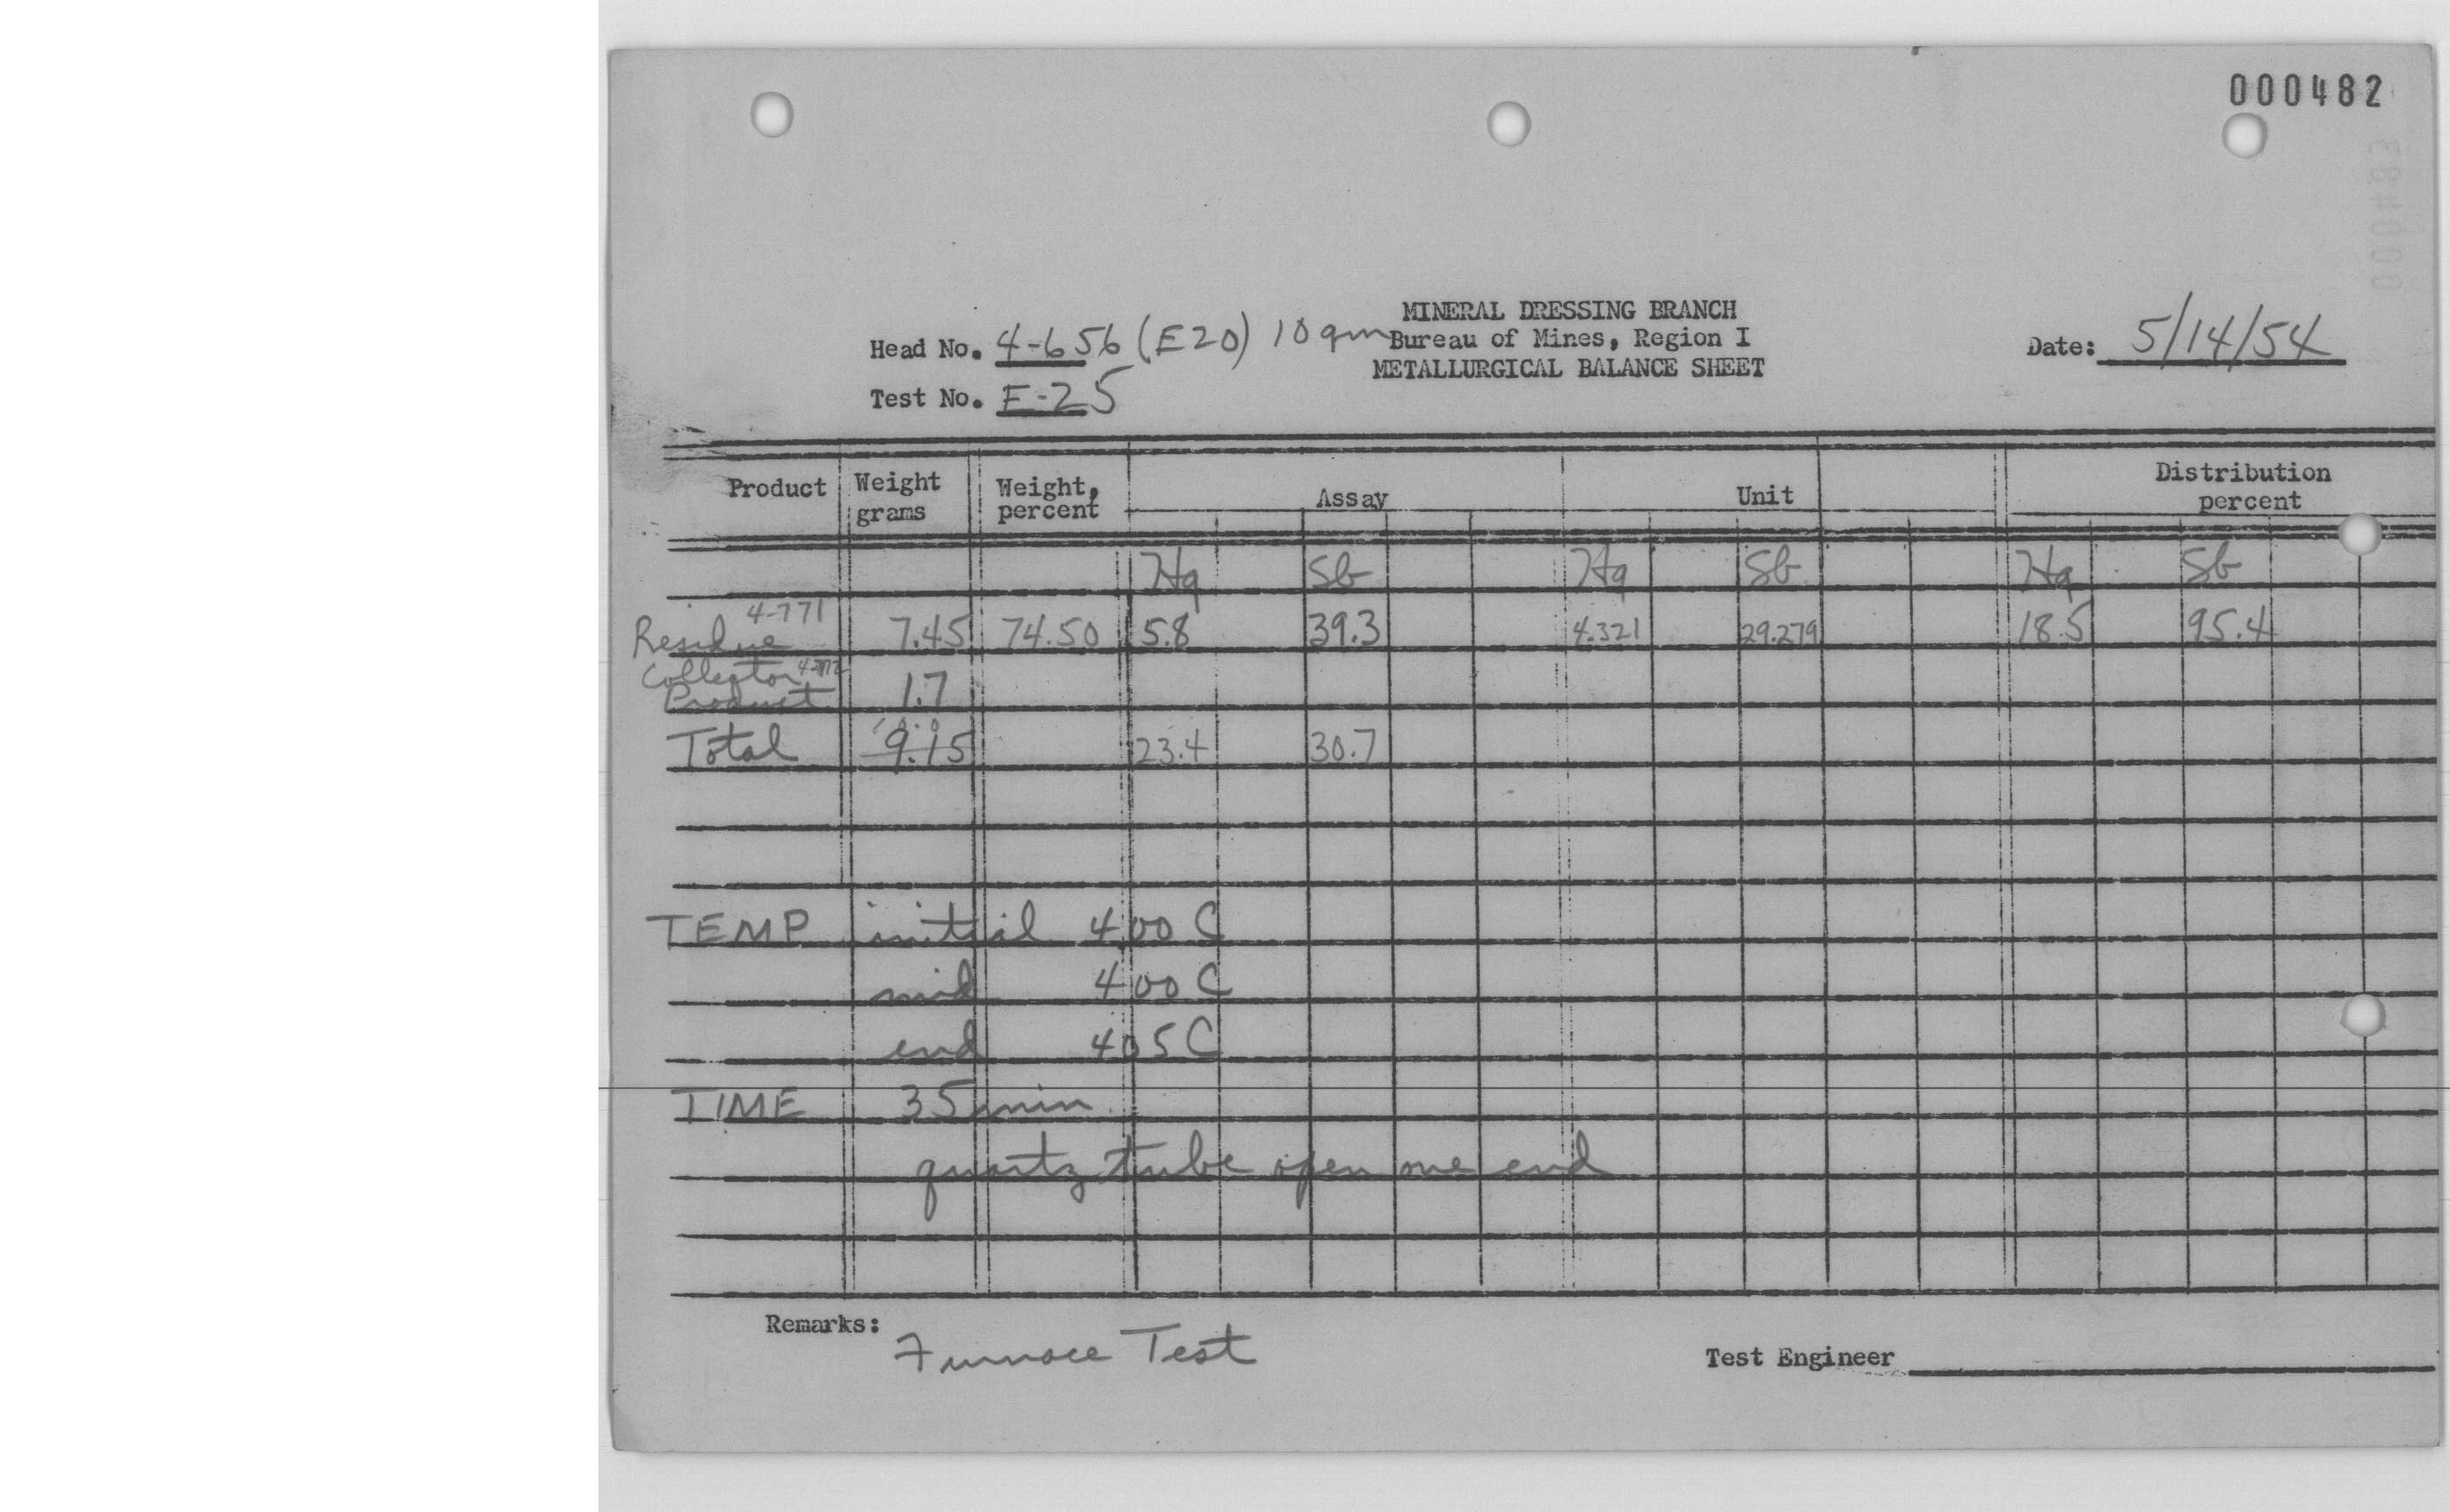 000482
MINERAL DRESSING BRANCH
Head No. 4-656 (E20) 10 gm Bureau of Mines, Region I Date: 5/14/54
METALLURGICAL BALANCE SHEET
Test No. E-25
Product Weight grams Weight, percent Assay Unit Distribution percent
Hg Sb Hg Sb Hg Sb
4-771
Residue 7.45 74.50 5.8 39.3 4.321 29.279 18.5 95.4
Collector 4-772
Product 1.7
10.0
Total 9.15 23.4 30.7
TEMP initial 400 C
mid 400 C
end 405 C
TIME 35 min
quartz tube open one end
Remarks:
Furnace Test
Test Engineer